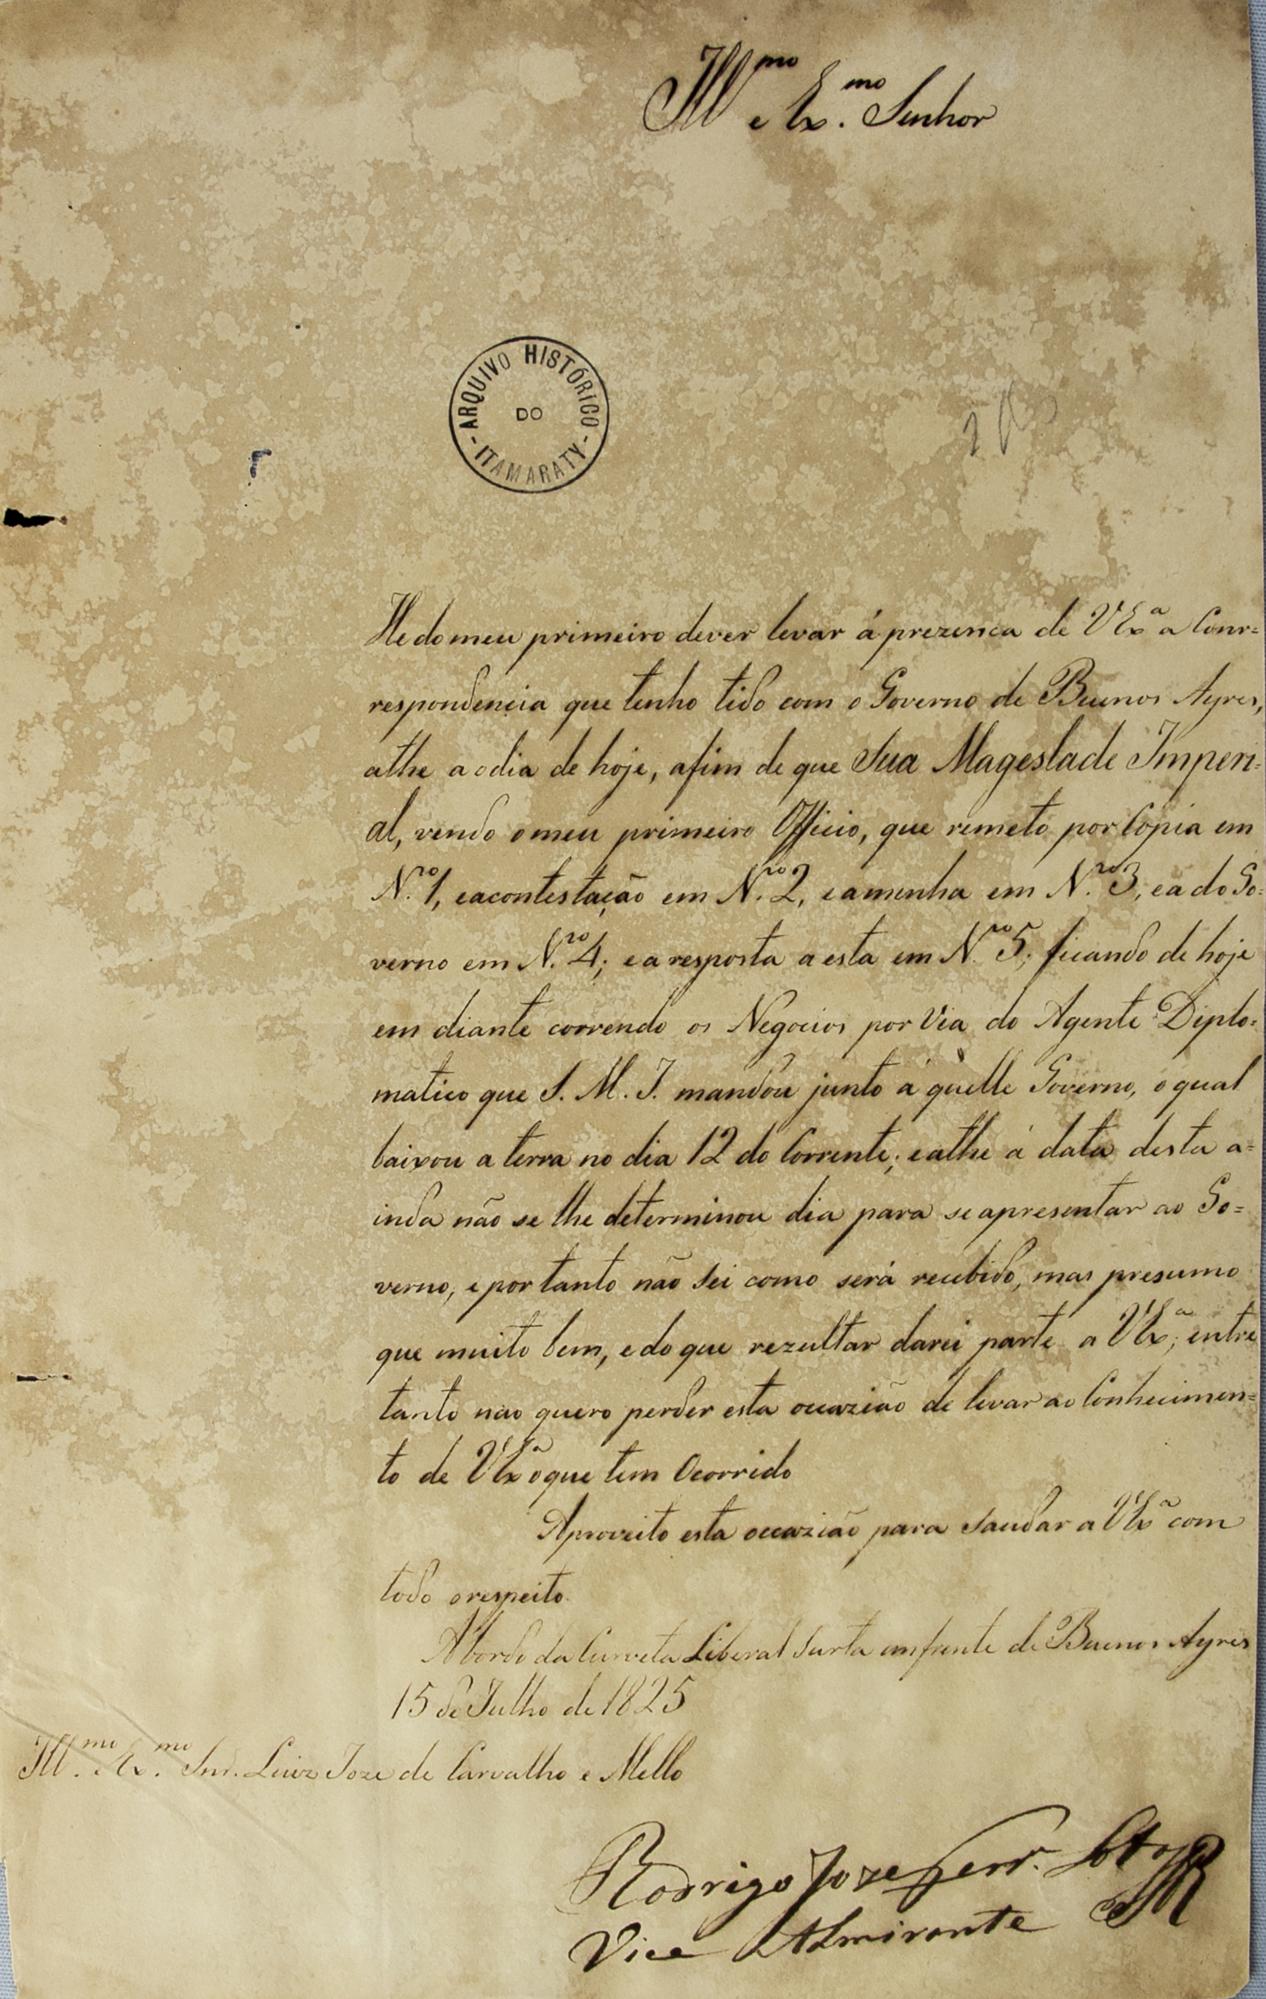 Ill.mo e Ex.mo Senhor
ARQUIVO HISTÓRICO
DO
- ITAMARATY -
He do meu primeiro dever levar á prezenca de V Ex.a a Corr=
respondencia que tenho tido com o Governo de Buenos Ayres,
athe ao dia de hoje, afim de que Sua Magestade Imperi=
al, vendo o meu primeiro Officio, que remeto por Copia em
N.ro 1, e a contestação em N.ro 2, e a minha em N.ro 3, e a do Go=
verno em N.ro 4; e a resposta a esta em N.ro 5; ficando de hoje
em diante correndo os Negocios por Via do Agente Diplo=
matico que S. M. I. mandou junto á quelle Governo, o qual
baixou a terra no dia 12 do Corrente; e athe á data desta a=
inda não se lhe determinou dia para se apresentar ao Go=
verno, e por tanto não sei como será recebido, mas presumo
que muito bem, e do que rezultar darei parte a V Ex.a; entre
tanto não quero perder esta occazião de levar ao Conhecimen=
to de V Ex.a o que tem Ocorrido
Aproveito esta occazião para saudar a V Ex.a com
todo o respeito
Abordo da Curveta Liberal Surta em frente de Buenos Ayres
15 de Julho de 1825
Ill.mo Ex.mo Snr. Luiz Joze de Carvalho e Mello
Rodrigo Joze Ferr. Lobo
Vice Almirante